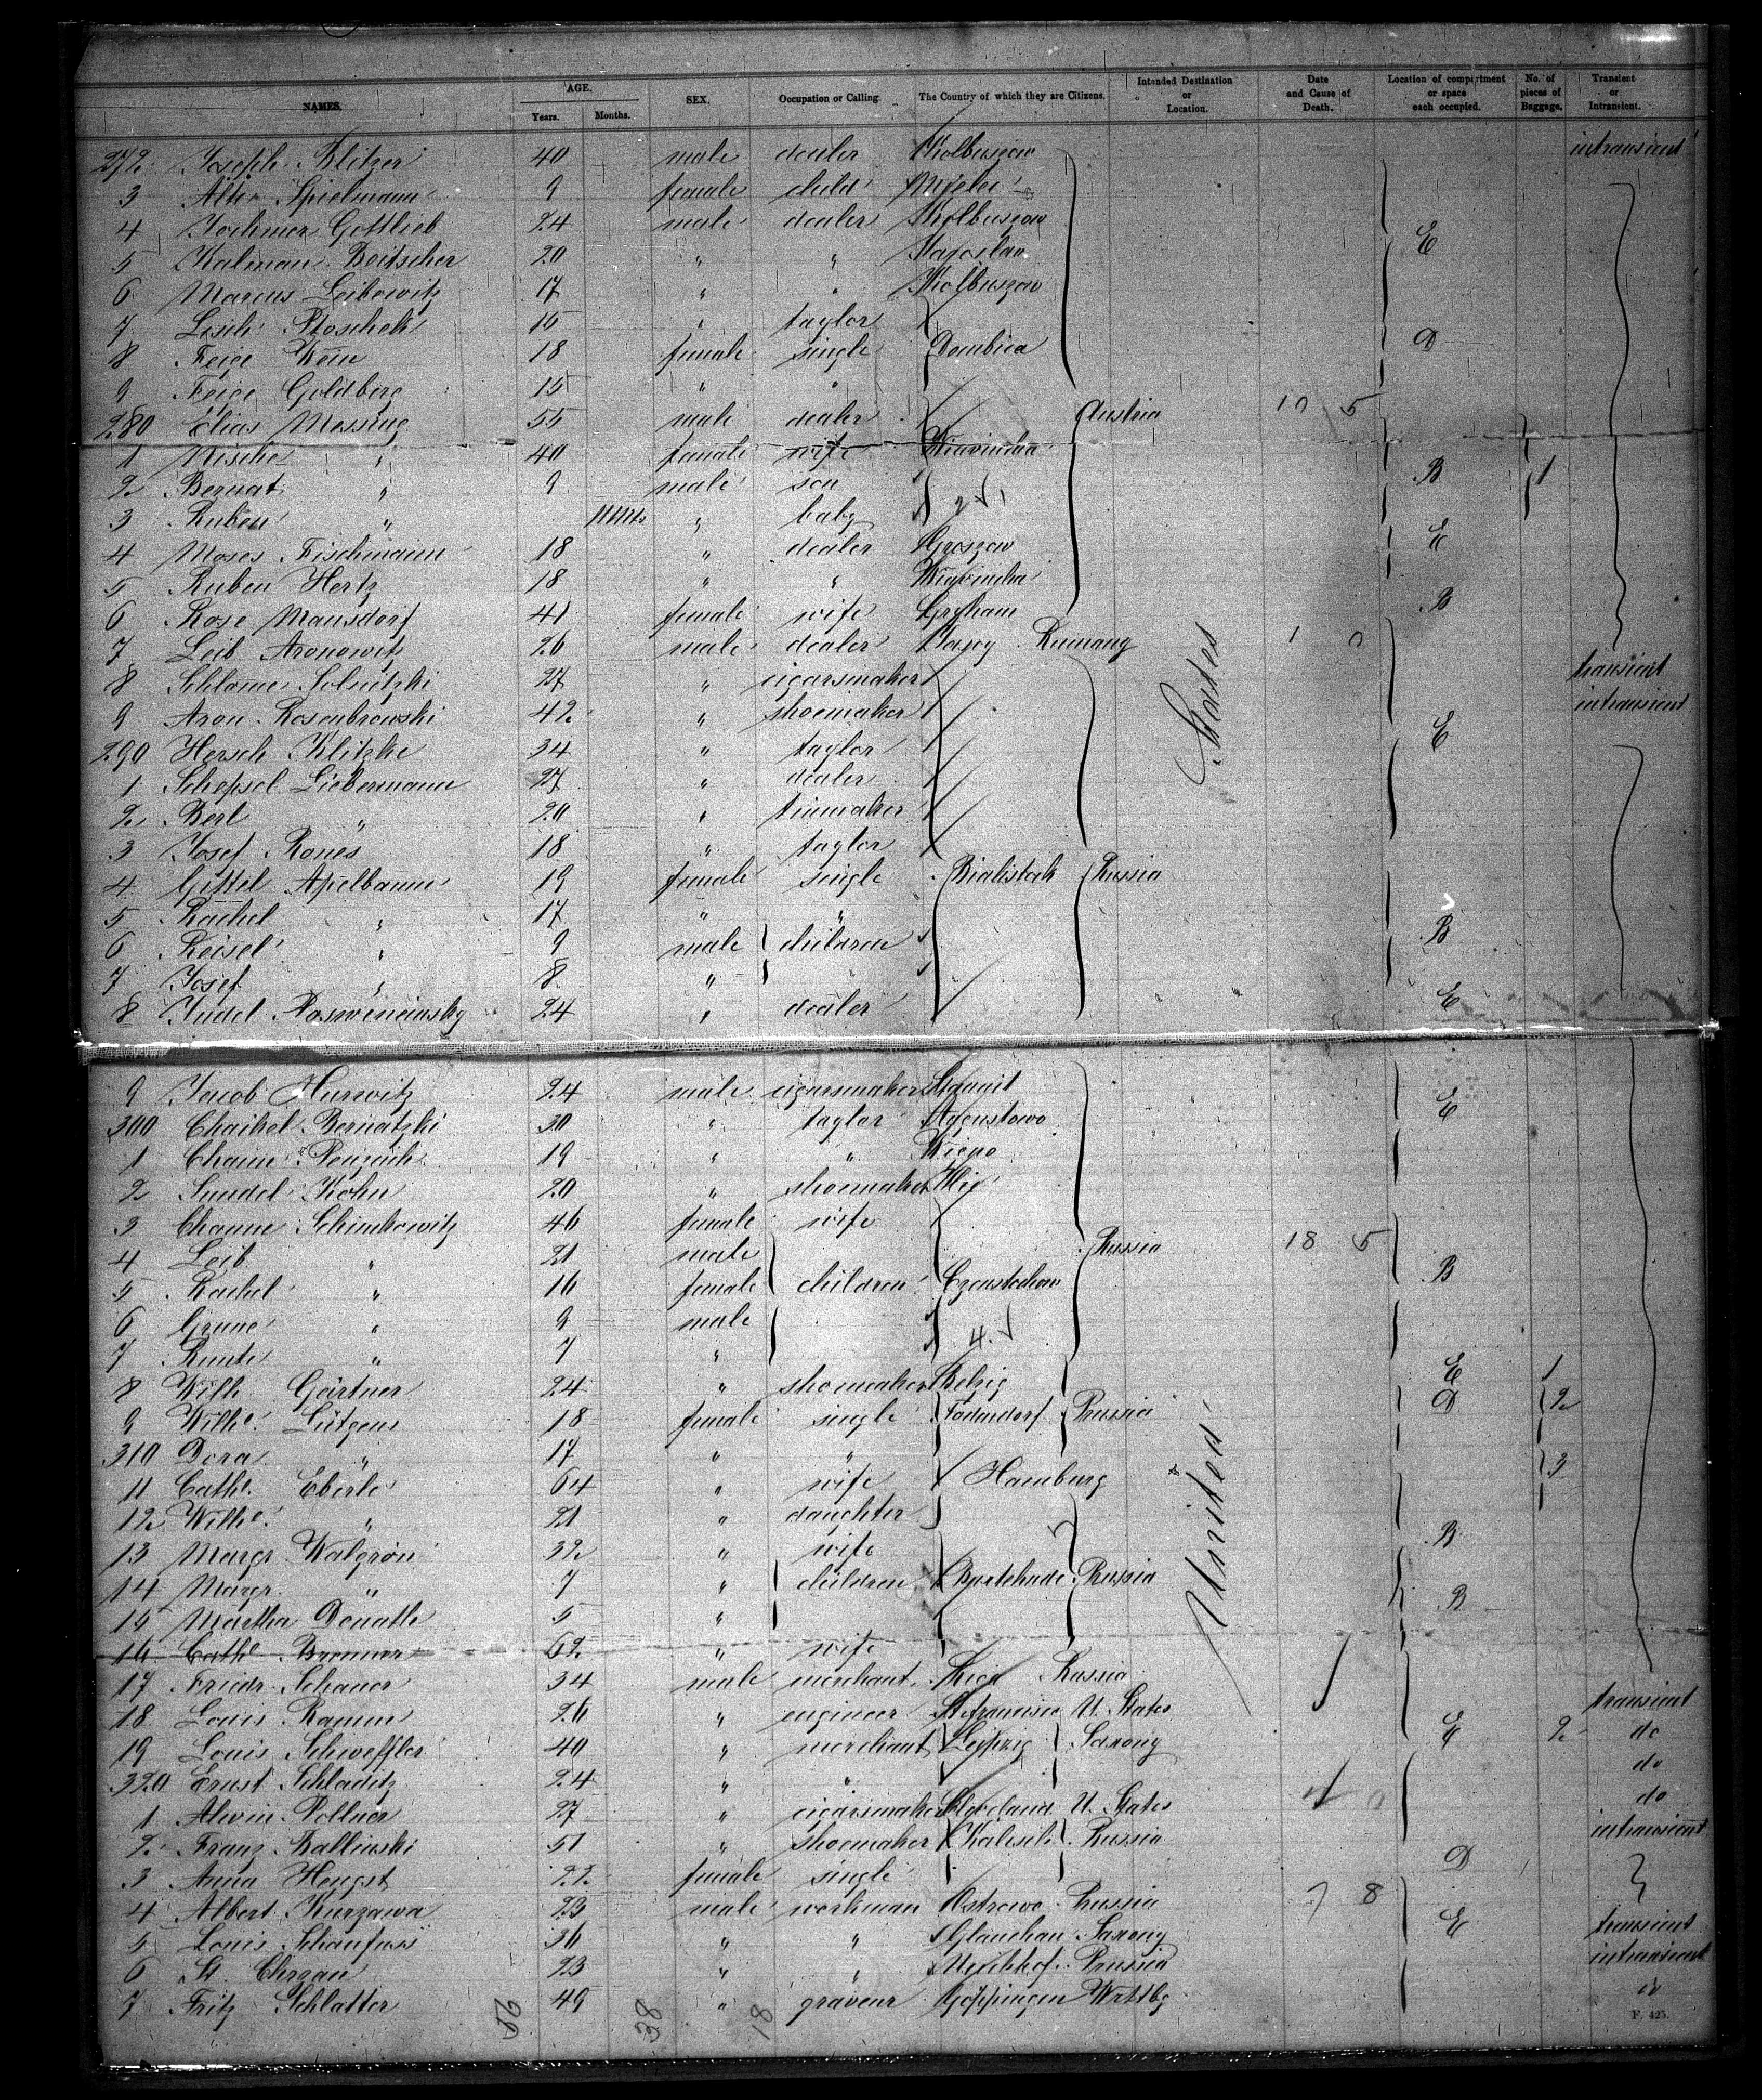 NAMES. AGE. Years. Months. SEX. Occupation or Calling. The Country of which they are Citizens. Intended Destination or Location. Date and Cause of Death. Location of compartment or space each occupied. No. of pieces of Baggage. Transient or Intransient.
272 Joseph Blitzer 40 male dealer Kolbuszow intransient
3 Alter Spielmann 9 female child Mielec
4 Gottlieb 24 male dealer Kolbuszow E
5 Kalman Beitscher 20 " " Jaroslau
6 Marcus Leibowitz 17 " " Kolbuszow
7 15 " taylor
8 Feige Wein 18 female single Dombica D
9 Feige Goldberg 15 " "
280 Elias Messing 55 male dealer Austria 10 5
1 Mische " 40 female wife
2 Bernat " 9 male son B 1
3 Ruben " 11 Mts " baby 2 1
4 Moses Fischmann 18 " dealer E
5 Ruben Hertz 18 " "
6 Rose Mansdorf 41 female wife B
7 Leib Aronowitz 26 male dealer Rumany 1 0
8 Schlome 27 " cigarsmaker States transient
9 Aron Rosenbrowski 42 " shoemaker intransient
290 Hersch Klitzke 34 " taylor E
1 Schepsel Liebermann 27 " dealer
2 Berl " 20 " tinmaker
3 Josef Rones 18 " taylor
4 Gittel Apelbaum 19 female single Bialistok Russia
5 Rachel " 17 " "
6 Reisel " 9 male children B
7 Josef " 8 "
8 Judel 24 " dealer E
9 Jacob Hurwitz 24 male cigarsmaker
300 Chaikel Bernatzki 30 " taylor Agenstowo E
1 Chaim 19 " "
2 Sundel Kohn 20 " shoemaker
3 Channe Schimkowitz 46 female wife
4 Leib " 21 male Russia 18 5
5 Rachel " 16 female children Czenstochow B
6 Grune " 9 male
7 " 7 " 4
8 Wilh. Gärtner 24 " shoemaker Belzig E 1
9 Wilhe. Lütgens 18 female single Prussia D 2
310 Dora " 17 " "
11 Cathe. Eberle 64 " wife Hamburg 3
12 Wilhe. " 21 " daughter United
13 Margr. Walgrön 32 " wife B
14 Margr. " 7 " children Buxtehude Prussia
15 Martha Donath 5 " B
16 Cathe Brenner 62 " wife
17 Friedr. Schauer 34 male merchant Russia
18 Louis Ramm 26 " engineer St. francisco U. States transient
19 Louis Scheffler 40 " merchant Leipzig Saxony E 2 do
320 Ernst Schladitz 24 " " do
1 Alwin Pollner 27 " cigarsmaker Cleveland U. States do
2 Franz Kallinski 51 " shoemaker Kalisch Russia intransient
3 Anna Hengst 22 female single D
4 Albert Kurzawa 23 male workman Ostrowo Prussia 7 8
5 Louis Schaufuss 36 " " Glauchau Saxony E transient
6 St. Chrzan 23 " " Prussia intransient
7 Fritz Schlatter 49 " graveur Göppingen Wrttbg do
38 18
F. 425.